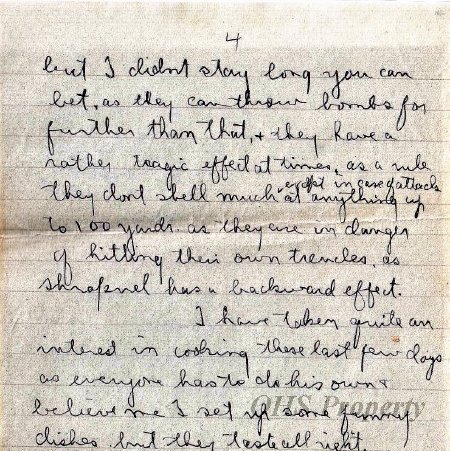 4
but I didnt stay long you can
bet, as they can throw bombs far
further than that, & they have a
rather tragic effect at times, as a rule
except in case of attacks
they dont shell much at anything up
to 100 yards. as they are in danger
of hitting their own trenches, as
shrapnel has a backward effect.
I have taken quite an
interest in cooking these last few days
as everyone has to do his own &
believe me I set up some funny
dishes, but they taste all right.
QHS Property